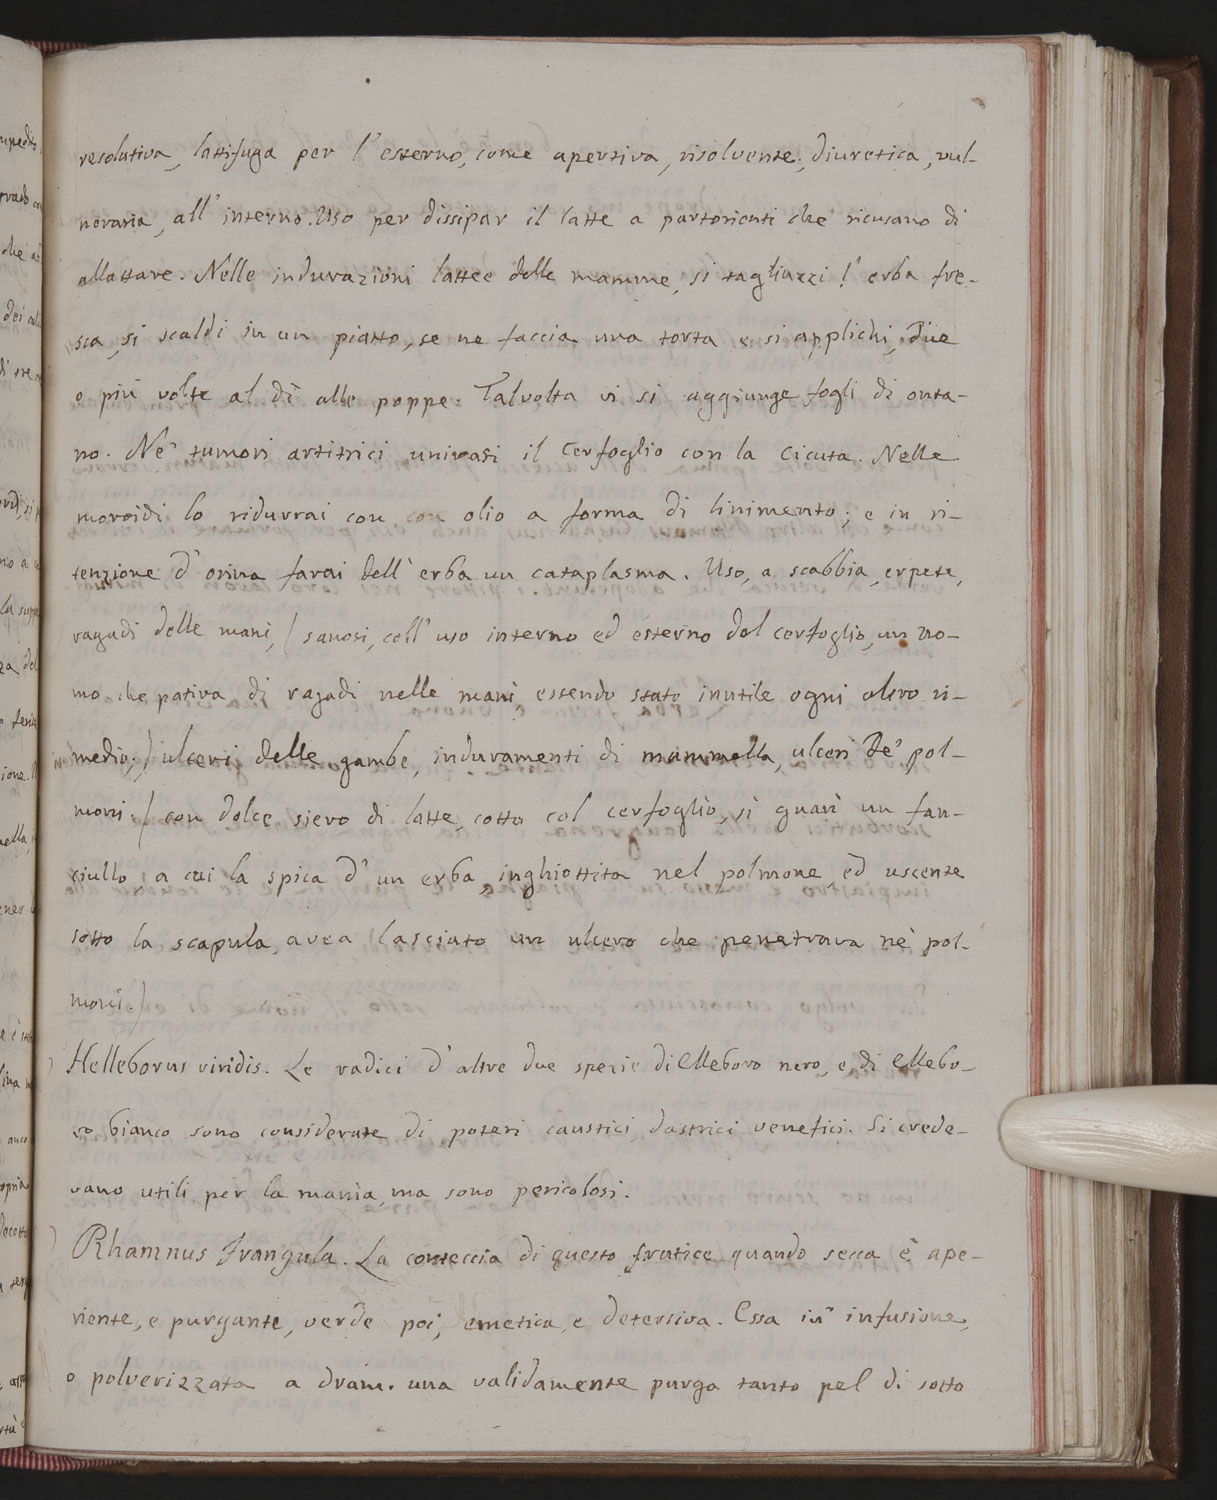 resolutiva, lattifuga per l'esterno, come apertiva, risolvente, diuretica, vul-
neraria, all'interno. Uso per dissipar il latte a partorienti che ricusano di
allattare. Nelle indurazioni lattee delle mamme, si tagliuzzi l'erba fre-
sca, si scaldi in un piatto, se ne faccia una torta e si applichi, due
o più volte al dì alle poppe. Talvolta vi si aggiunge fogli di onta-
no. Ne' tumori artitrici univasi il Cerfoglio con la Cicuta. Nelle
moroidi lo ridurrai con con olio a forma di linimento; e in ri-
tenzione d'orina farai dell'erba un cataplasma. Uso, a scabbia, erpete,
ragadi delle mani, ( sanosi, coll'uso interno ed esterno del cerfoglio, un uo-
mo che pativa di ragadi nelle mani essendo stato inutile ogni altro ri-
medio; ) ulceri delle gambe, induramenti di mammella, ulceri de' pol-
moni. ( con dolce siero di latte cotto col cerfoglio, si guarì un fan-
ciullo a cui la spica d'un erba inghiottita nel polmone ed uscente
sotto la scapula avea lasciato un ulcero che penetrava ne' pol-
moni. )
Helleborus viridis. Le radici d'altre due spezie di Elleboro nero, e di Ellebo-
ro bianco sono considerate di poteri caustici, dastrici venefici. Si crede-
vano utili per la mania, ma sono pericolosi.
Rhamnus Frangula. La corteccia di questo frutice quando secca è ape-
riente, e purgante, verde poi, emetica, e detersiva. Essa in infusione,
o polverizzata a dram. una validamente purga tanto pel di sotto